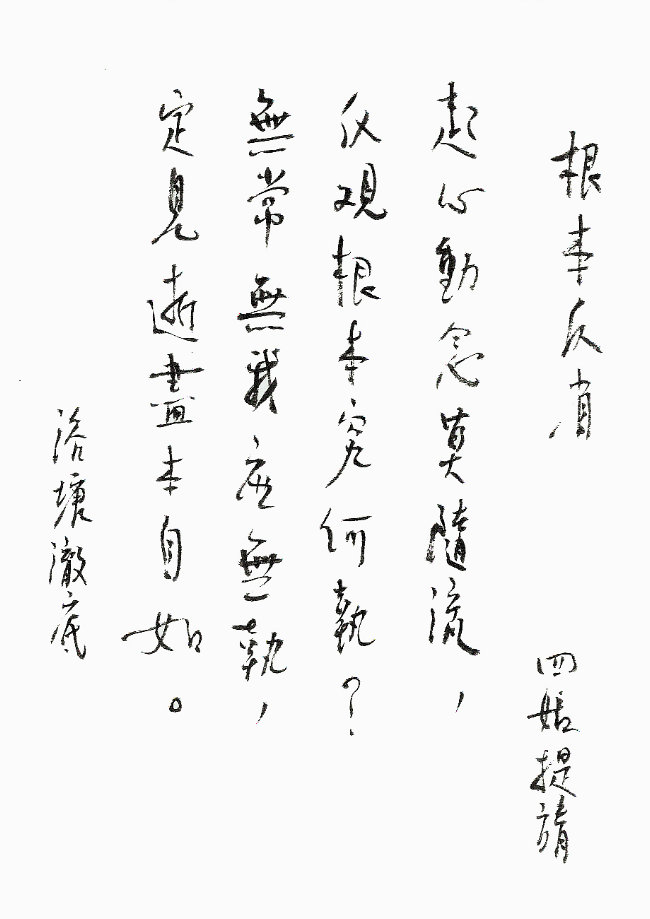 根本反省
四姐提請
起心動念莫隨流，
反观根本究何執？
無常無我應無執，
定見逝盡本自如。
浴塘澈底